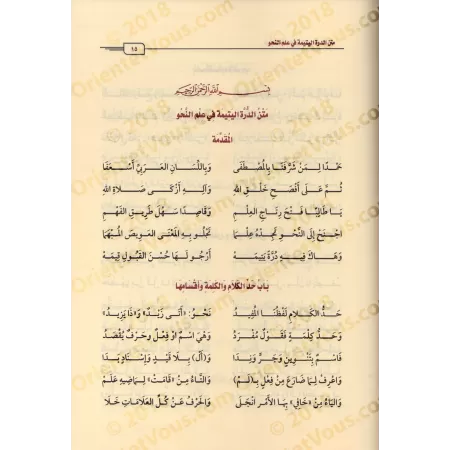 متن الدرة اليتيمة في علم النحو
١٥
بِسْمِ اللَّهِ الرَّحْمَنِ الرَّحِيمِ
مَتْنُ الدُّرَّة اليَتيمَة في عِلم النَّحْو
المُقدّمة
حَمْدًا لِمَنْ شَرَّفَنَا بِالمُصْطَفَى وَبِاللِّسَانِ العَرَبِيِّ أَسْعَفَا
ثُمَّ عَلَى أَفْصَحِ خَلْقِ اللهِ وَآلِهِ أَزْكَى صَلَاةِ اللهِ
يَا طَالِبًا فَتْحَ رِتَاجِ العِلْمِ وَقَاصِدًا سَهْلَ طَرِيقِ الفَهْمِ
اِجْنَحْ إِلَى النَّحْوِ تَجِدْهُ عِلْمَا تَجْلُو بِهِ المَعْنَى العَوِيصَ المُبْهَمَا
وَهَاكَ فِيهِ دُرَّةً يَتِيمَهْ أَرْجُو لَهَا حُسْنَ القَبُولِ قِيمَهْ
بَابُ حَدِّ الكَلَامِ وَالكَلِمَةِ وَأَقْسَامِهَا
حَدُّ الكَلَامِ لَفْظُنَا المُفِيدُ نَحْوُ: «أَتَى زَيْدٌ» وَ«ذَا يَزِيدُ»
وَحَدُّ كِلْمَةٍ فَقَوْلٌ مُفْرَدُ وَهْيَ اسْمٌ اوْ فِعْلٌ وَحَرْفٌ يُقْصَدُ
فَاسْمٌ بِتَنْوِينٍ وَجَرٍّ وَنِدَا وَ(أَلْ) بِلَا قَيْدٍ وَإِسْنَادٍ بَدَا
وَاعْرِفْ لِمَا ضَارَعَ مِنْ فِعْلٍ بِـ(لَمْ) وَالتَّاءُ مِنْ «قَامَتْ» لِمَاضِيهِ عَلَمْ
وَاليَاءُ مِنْ «خَافِي» بِهَا الأَمْرُ انْجَلَى وَالحَرْفُ عَنْ كُلِّ العَلَامَاتِ خَلَا
© 2018
OrientetVous.com